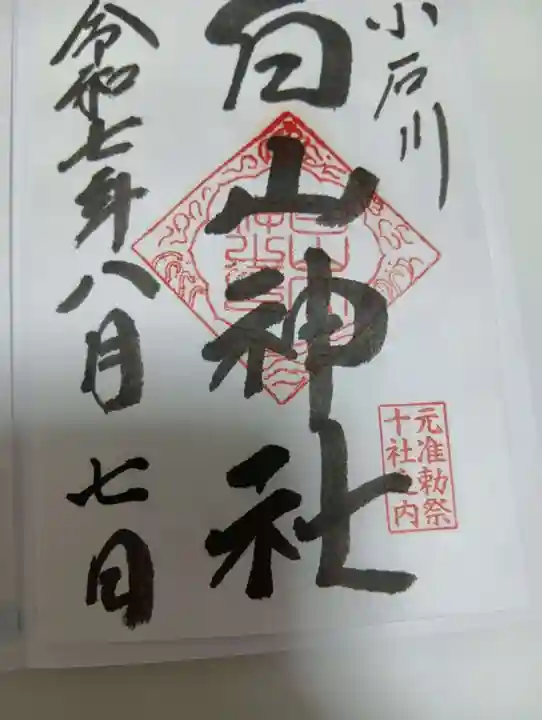 小石川
白山神社
令和七年八月七日
元准勅祭
十社之内